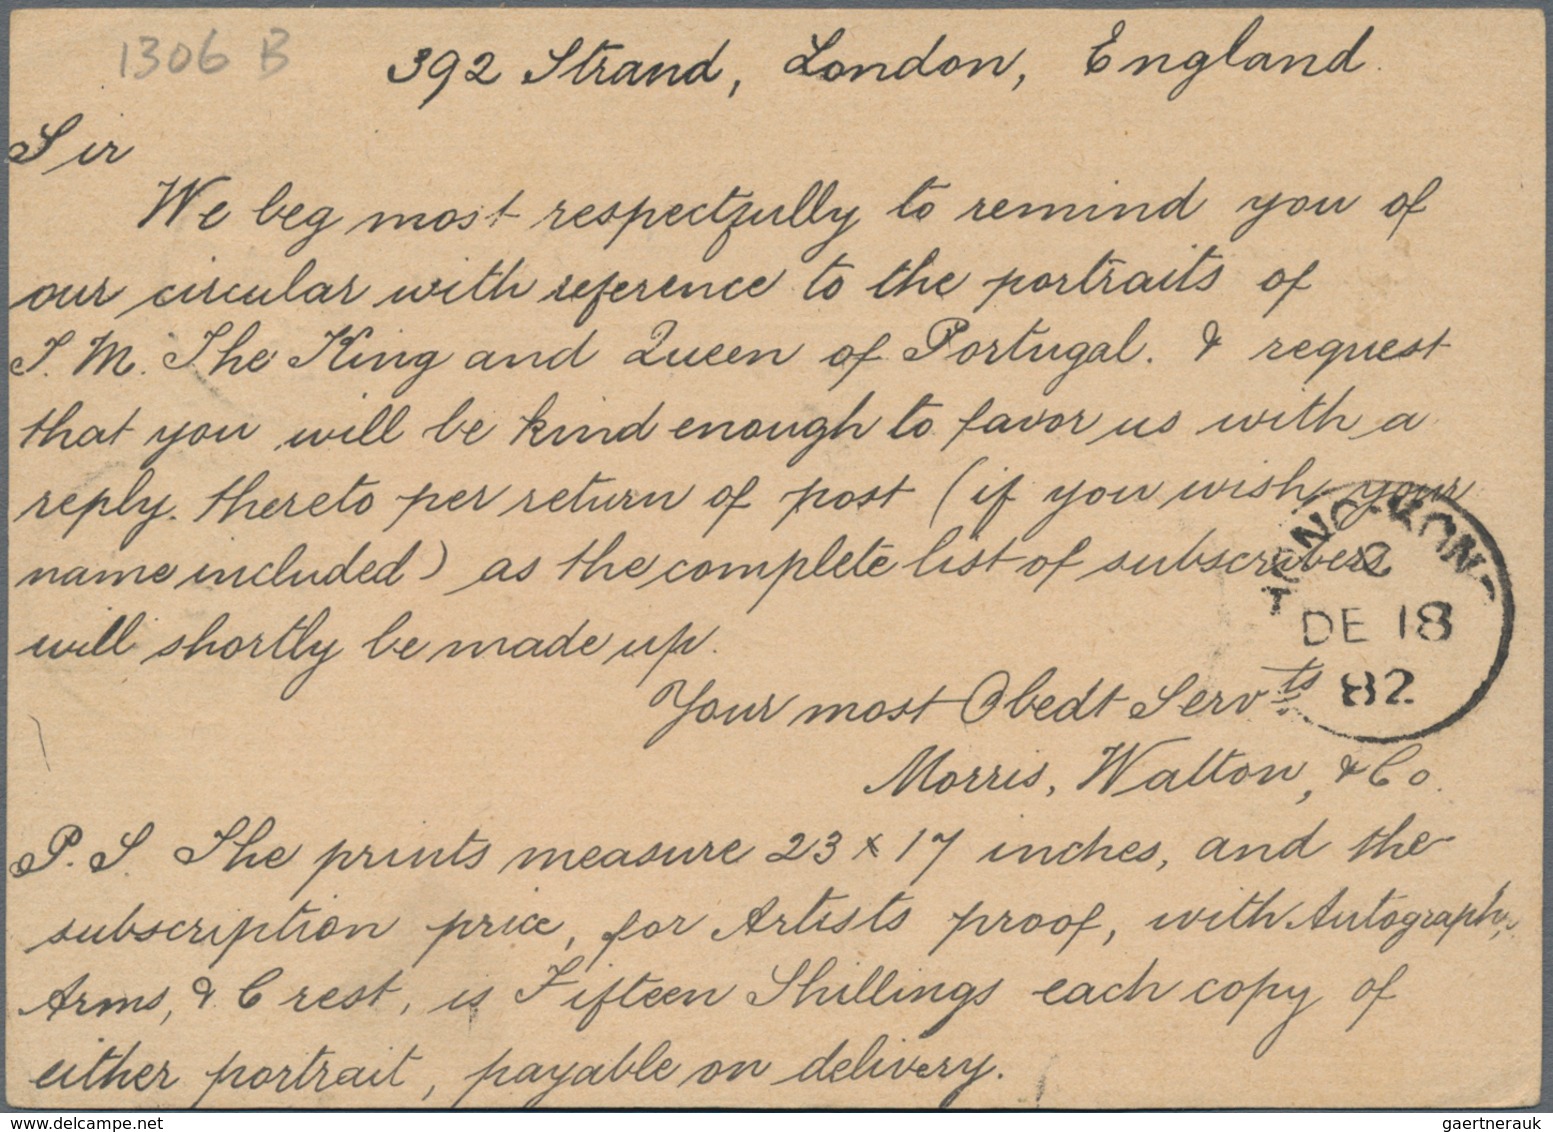 1306 B
392 Strand, London, England.
Sir
We beg most respectfully to remind you of
our circular with reference to the portraits of
T. M. The King and Queen of Portugal. & request
that you will be kind enough to favor us with a
reply. thereto per return of post (if you wish, your
name included) as the complete list of subscribers
will shortly be made up.
HONG-KONG
C
DE 18
82
Your most Obedt Servts
Morris, Walton, & Co.
P. S. The prints measure 23 x 17 inches, and the
subscription price, for Artists proof, with Autograph,
Arms, & Crest, is Fifteen Shillings each copy of
either portrait, payable on delivery.
gaertnerauk